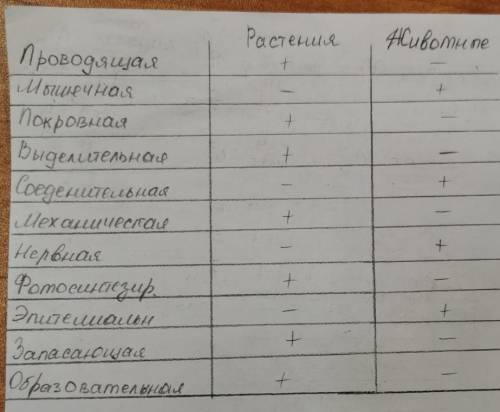 Растения Животные
Проводящая + –
Мышечная – +
Покровная + –
Выделительная + –
Соеденительная – +
Механическая + –
Нервная – +
Фотосинтезир. + –
Эпителиальн – +
Запасающая + –
Образовательная + –